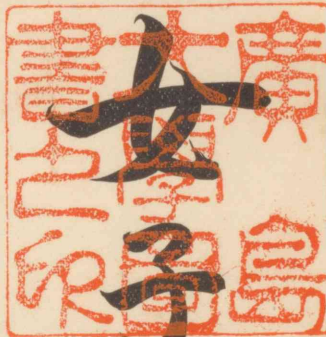 女子
廣島
大學圖
書之印